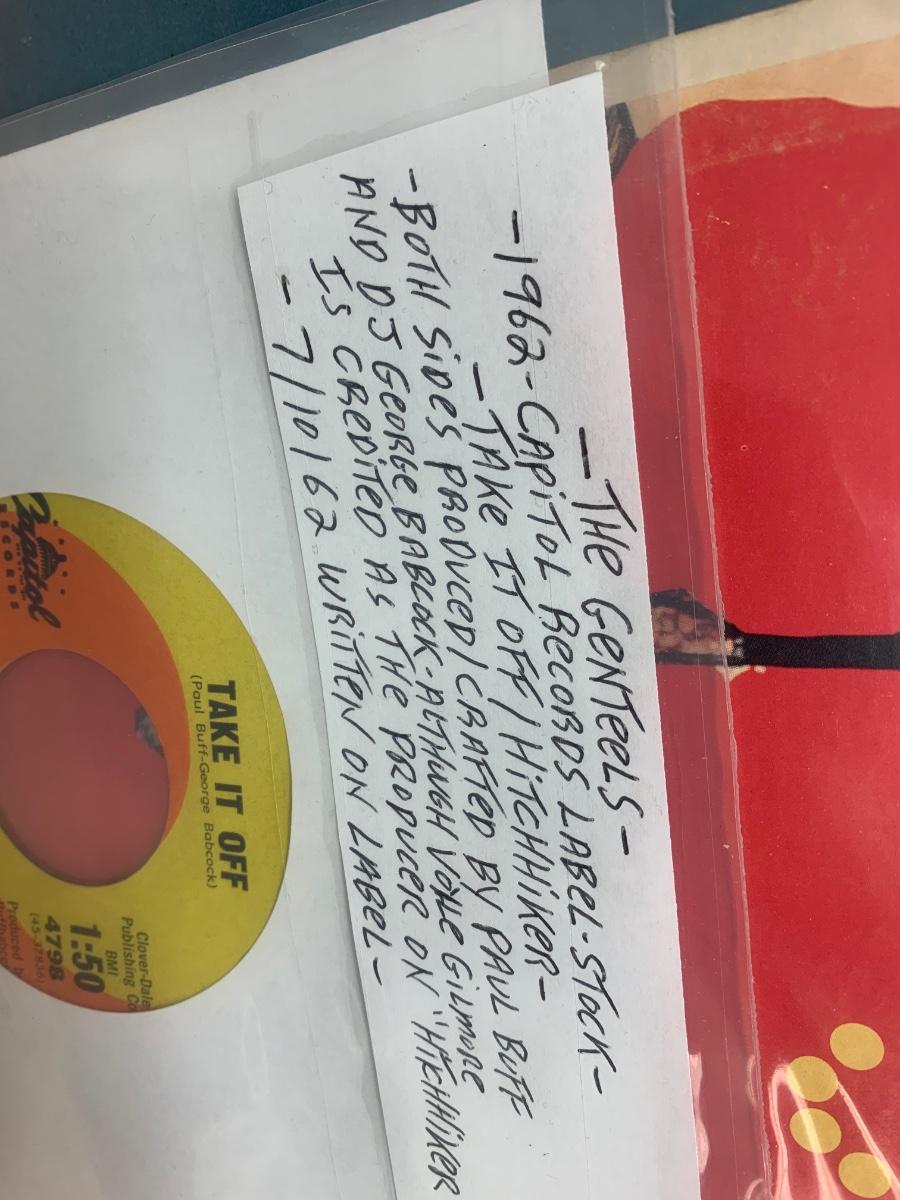 -THE GENTEELS-
-1962-CAPITOL RECORDS LABEL-STOCK-
-TAKE IT OFF/HITCHHIKER-
-BOTH SIDES PRODUCED/CRAFTED BY PAUL BUFF
AND DJ GEORGE BABCOCK-ALTHUGH VOHE GILMORE
IS CREDITED AS THE PRODUCER ON "HIKHHIKER
-7/10/62 WRITTEN ON LABEL-
Capitol
RECORDS
TAKE IT OFF
(Paul Buff-George Babcock)
Clover-Dale
Publishing Co
BMI
1:50
4798
(45-37830)
Produced by